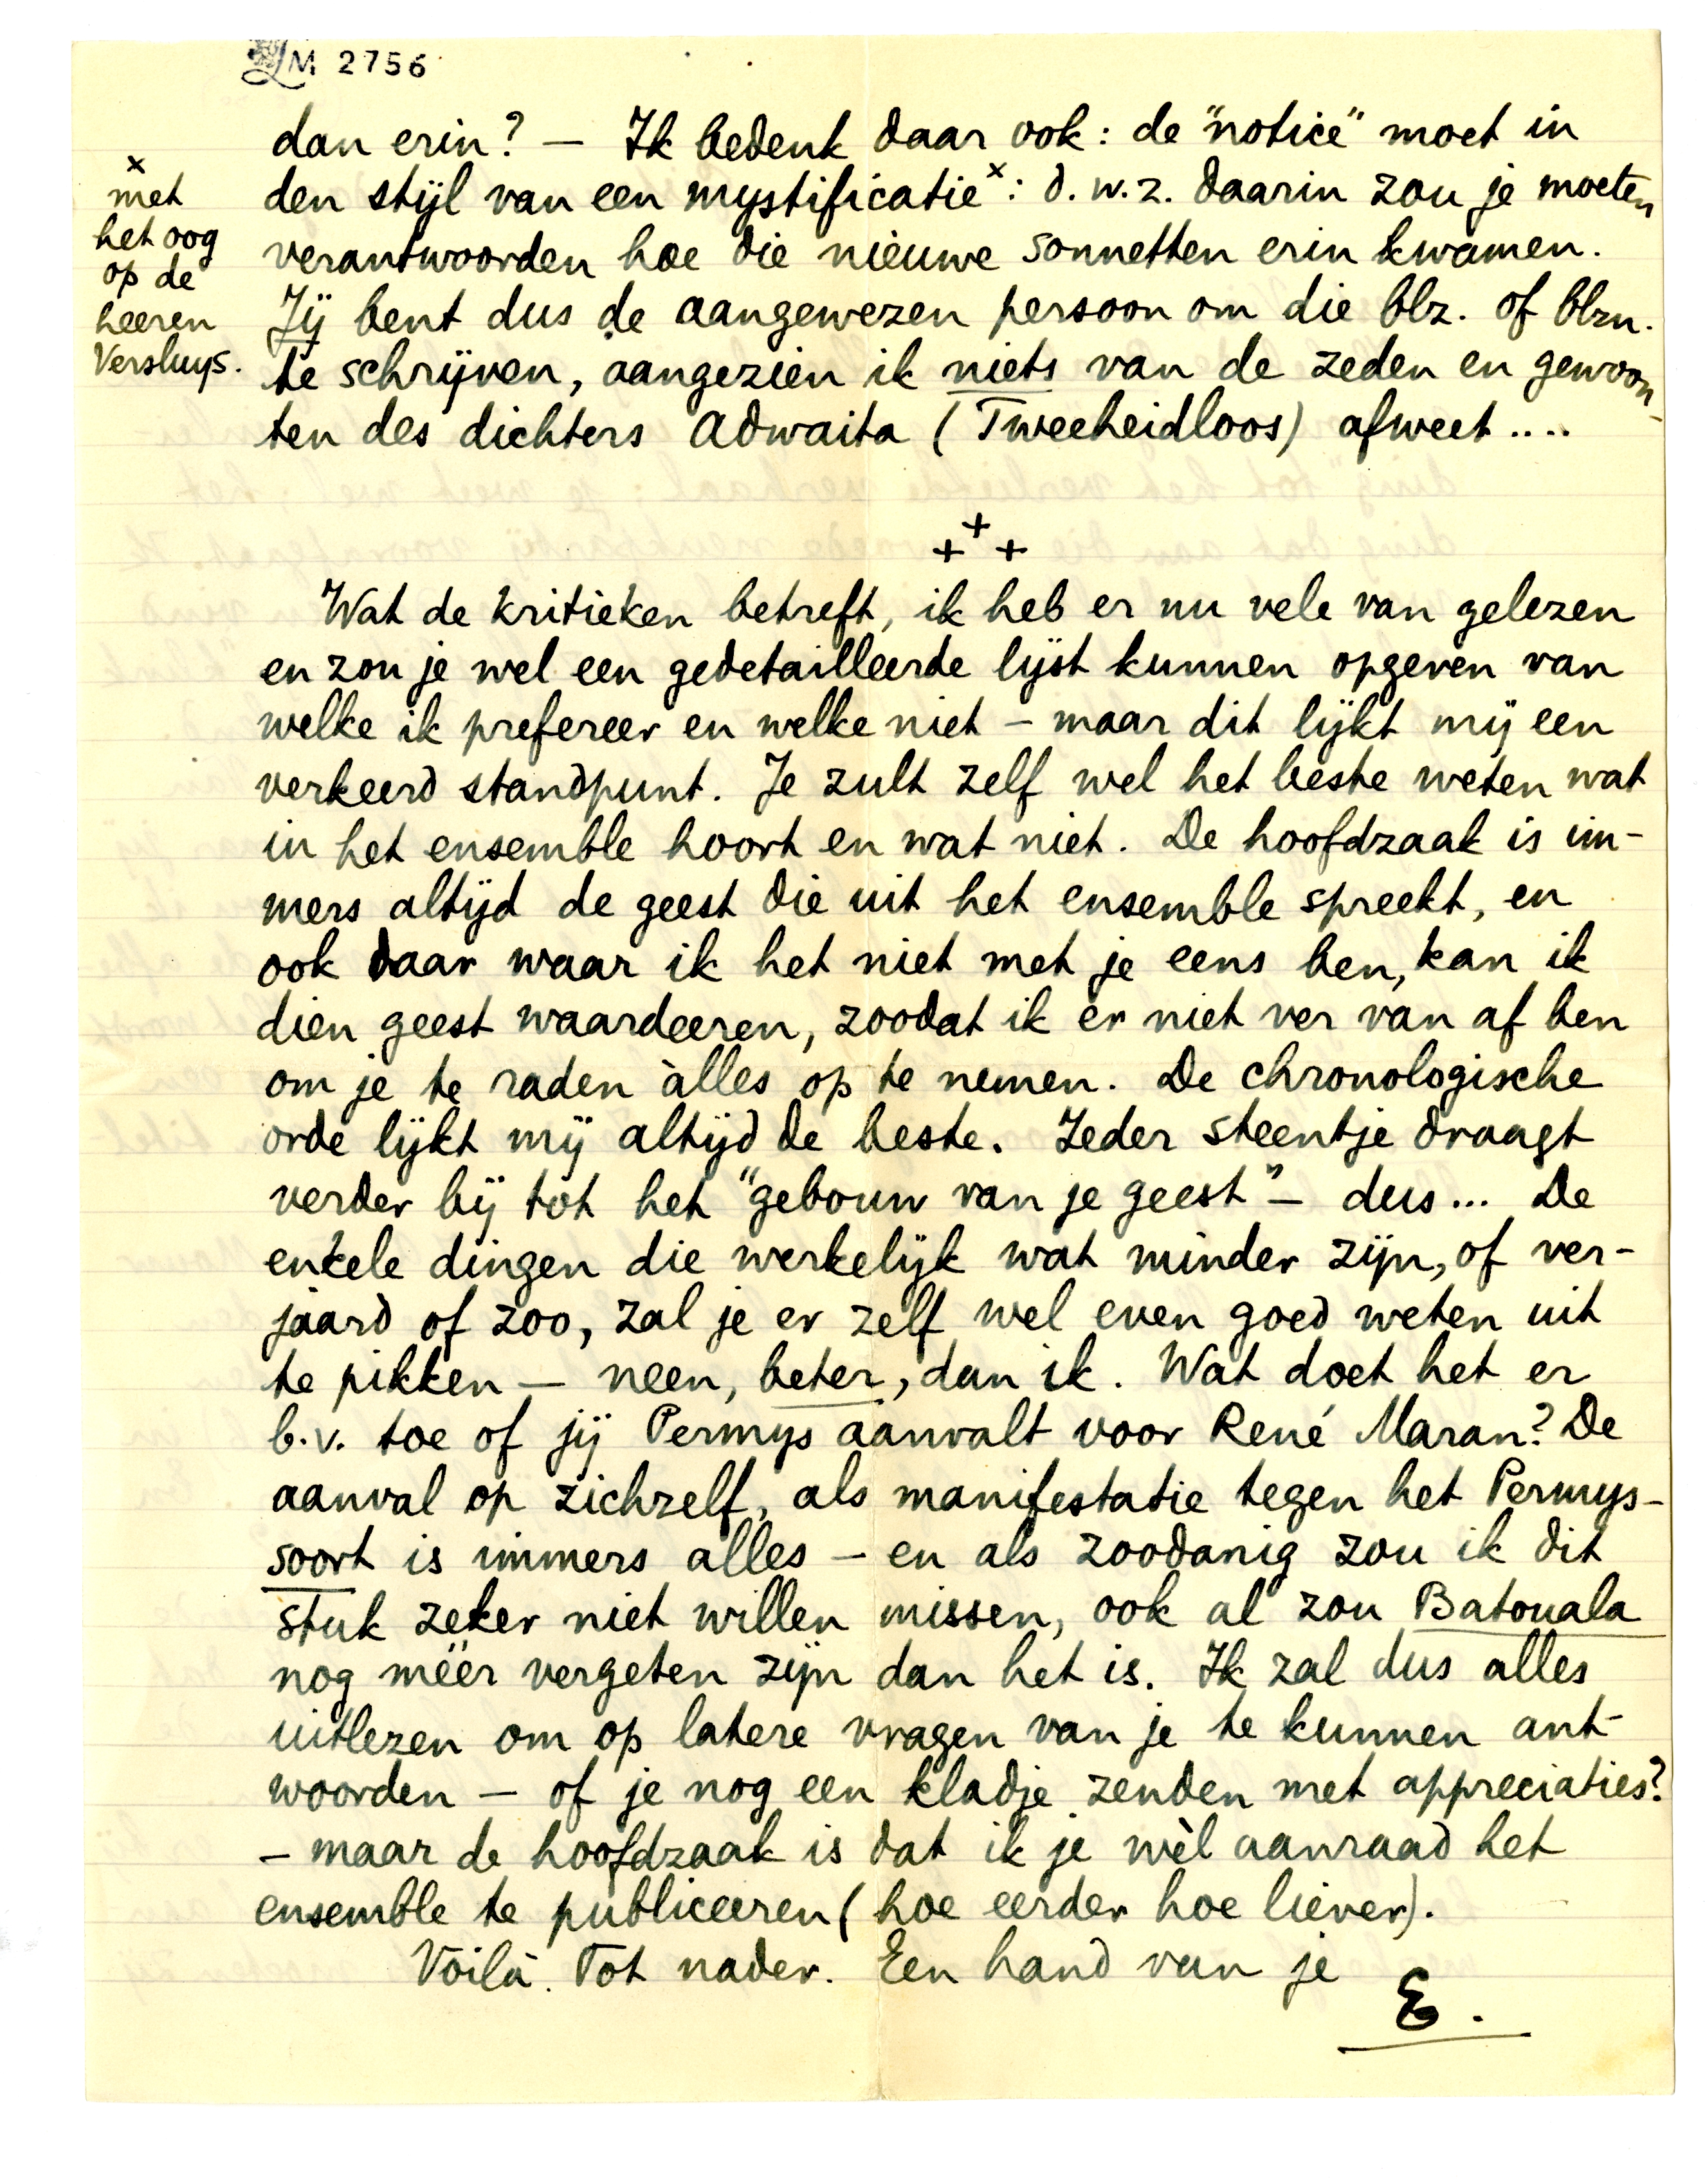 LM 2756
dan erin? — Ik bedenk daar ook: de "notice" moet in
den stijl van een mystificatie x: d.w.z. daarin zou je moeten
verantwoorden hoe die nieuwe sonnetten erin kwamen.
Jij bent dus de aangewezen persoon om die blz. of blzn.
te schrijven, aangezien ik niets van de zeden en gewoon-
ten des dichters Adwaita (Tweeheidloos) afweet....
x
met
het oog
op de
heeren
Versluys.
+++
Wat de kritieken betreft, ik heb er nu vele van gelezen
en zou je wel een gedetailleerde lijst kunnen opgeven van
welke ik prefereer en welke niet — maar dit lijkt mij een
verkeerd standpunt. Je zult zelf wel het beste weten wat
in het ensemble hoort en wat niet. De hoofdzaak is im-
mers altijd de geest die uit het ensemble spreekt, en
ook daar waar ik het niet met je eens ben, kan ik
dien geest waardeeren, zoodat ik er niet ver van af ben
om je te raden àlles op te nemen. De chronologische
orde lijkt mij altijd de beste. Ieder steentje draagt
verder bij tot het "gebouw van je geest" — dus... De
enkele dingen die werkelijk wat minder zijn, of ver-
jaard of zoo, zal je er zelf wel even goed weten uit
te pikken — neen, beter, dan ik. Wat doet het er
b.v. toe of jij Permys aanvalt voor René Maran? De
aanval op zichzelf, als manifestatie tegen het Permys-
soort is immers alles — en als zoodanig zou ik dit
stuk zeker niet willen missen, ook al zou Batouala
nog méér vergeten zijn dan het is. Ik zal dus alles
uitlezen om op latere vragen van je te kunnen ant-
woorden — of je nog een kladje zenden met appreciaties?
— maar de hoofdzaak is dat ik je wèl aanraad het
ensemble te publiceeren (hoe eerder hoe liever).
Voilà. Tot nader. Een hand van je
E.